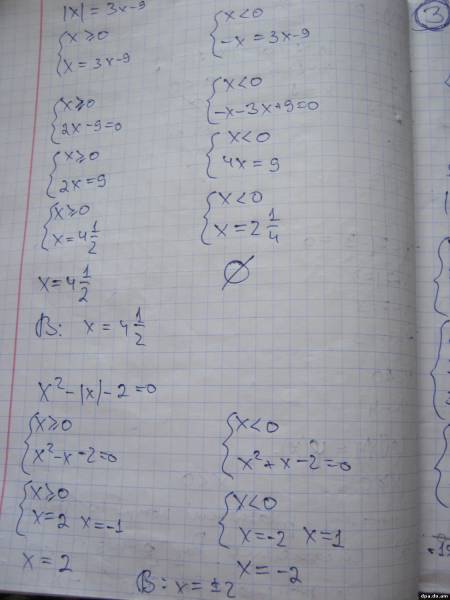 |x| = 3x-9
{x≥0
x = 3x-9
{x<0
-x = 3x-9
{x≥0
2x-9=0
{x<0
-x-3x+9=0
{x≥0
2x=9
{x<0
4x=9
{x≥0
x=4 1/2
{x<0
x=2 1/4
x=4 1/2
∅
В: x=4 1/2
x²-|x|-2=0
{x≥0
x²-x-2=0
{x<0
x²+x-2=0
{x≥0
x=2 x=-1
{x<0
x=-2 x=1
x=2
x=-2
В: x=±2
3
dpa.do.am